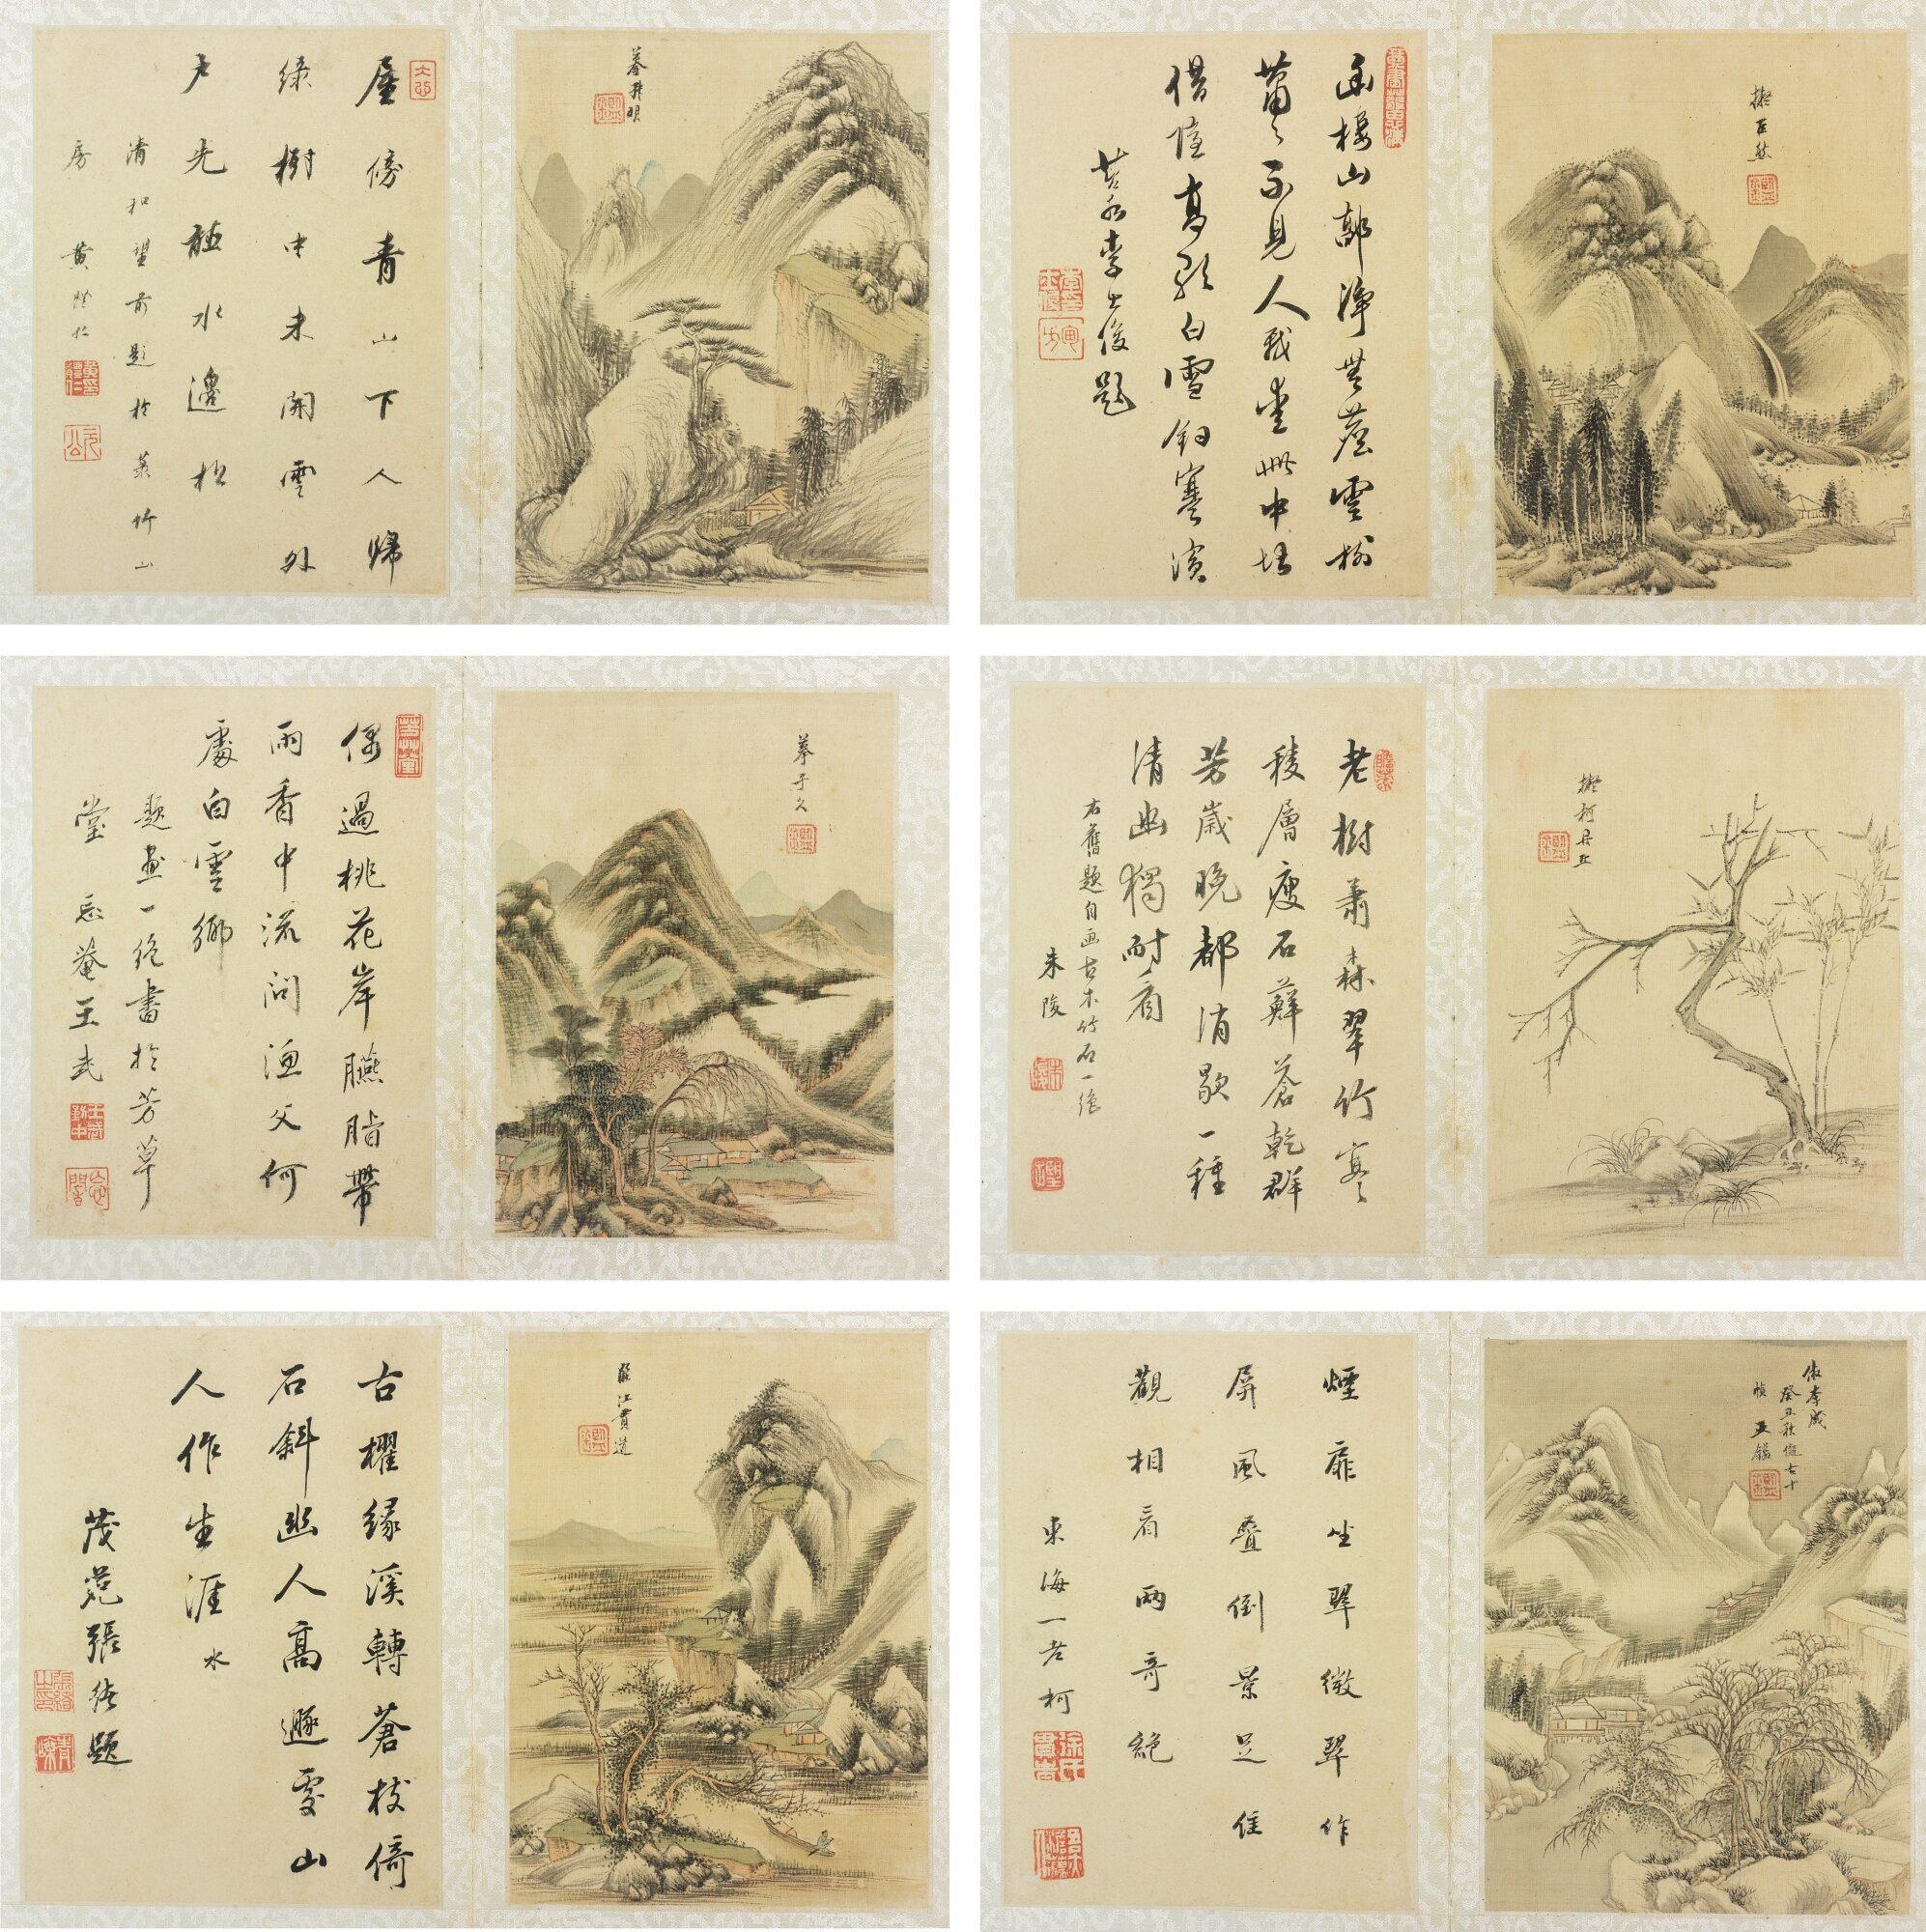 屋傍青山下人歸
綠樹中未開雲外
戶先聽水邊松
清和望前題於菉竹山
房 黃體仁
摹叔明
函樓山鄣淨無塵雲樹
蕭蕭不見人我
借隆高歌白雪
李士俊題
擬巨然
偶過桃花岸臙脂帶
雨香中流問漁父何
處白雲鄉
題畫一絕書於芳草
堂 忘菴王武
摹子久
老樹蕭森翠竹寒
稜層瘦石蘚蒼乾群
芳歲晚都消歇一種
清幽獨耐看
右舊題自畫古木竹石一絕
朱陵
擬柯丹丘
古櫂緣溪轉蒼枝倚
石斜幽人高遯處山
人作生涯 水
茂苑張佳題
擬江貫道
煙扉坐翠微翠作
屏風疊倒景足佳
觀相看兩奇絕
東海一老柯
倣李成
癸丑秋僊七十